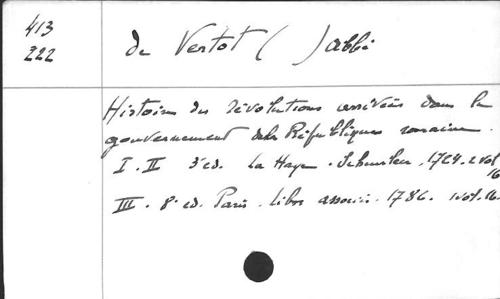 413
222
de Vertot ( ) abbé
Histoire des révolutions arrivées dans le
gouvernement de la République romaine.
I. II 3e éd. La Haye. Scheurleer. 1724. 2 vol
16
III. 8e éd. Paris. Libr associés. 1786. 1 vol. 16.